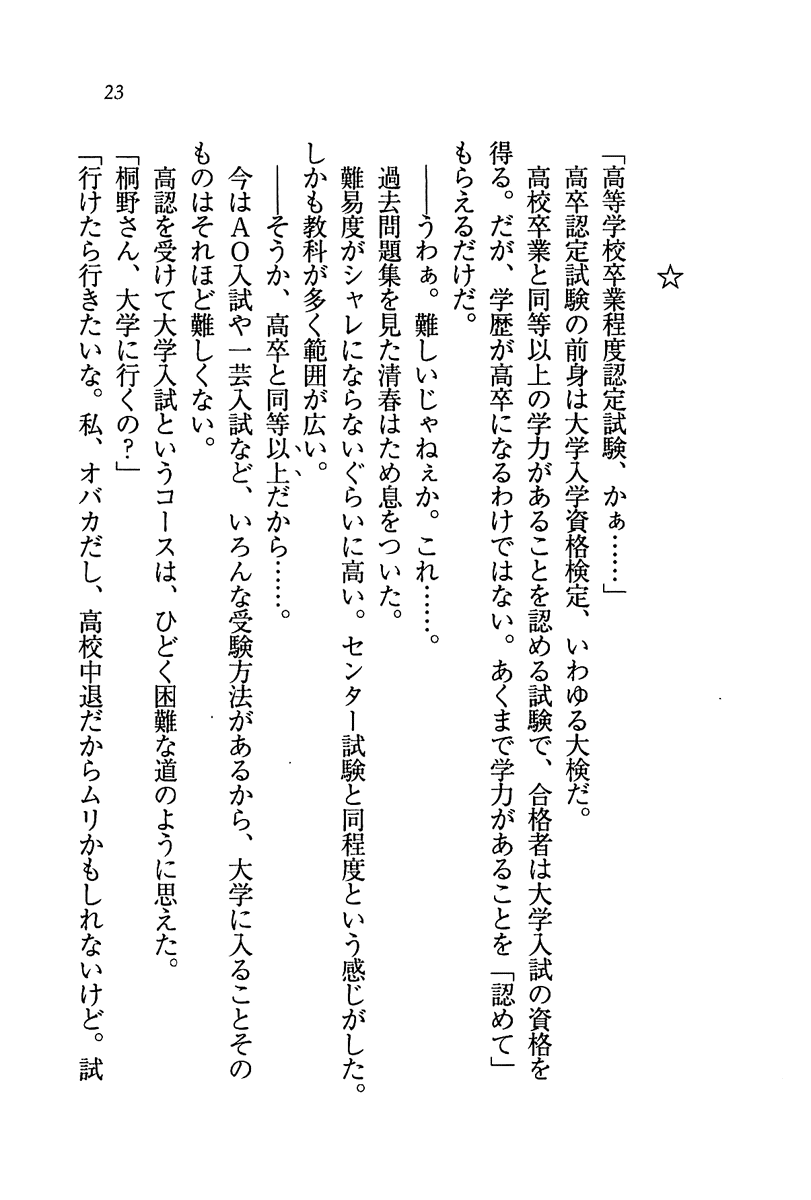 23
☆
「高等学校卒業程度認定試験、かぁ……」
高卒認定試験の前身は大学入学資格検定、いわゆる大検だ。
高校卒業と同等以上の学力があることを認める試験で、合格者は大学入試の資格を
得る。だが、学歴が高卒になるわけではない。あくまで学力があることを「認めて」
もらえるだけだ。
――うわぁ。難しいじゃねぇか。これ……。
過去問題集を見た清春はため息をついた。
難易度がシャレにならないぐらいに高い。センター試験と同程度という感じがした。
しかも教科が多く範囲が広い。
――そうか、高卒と同等以上だから……。
今はＡＯ入試や一芸入試など、いろんな受験方法があるから、大学に入ることその
ものはそれほど難しくない。
高認を受けて大学入試というコースは、ひどく困難な道のように思えた。
「桐野さん、大学に行くの？」
「行けたら行きたいな。私、オバカだし、高校中退だからムリかもしれないけど。試